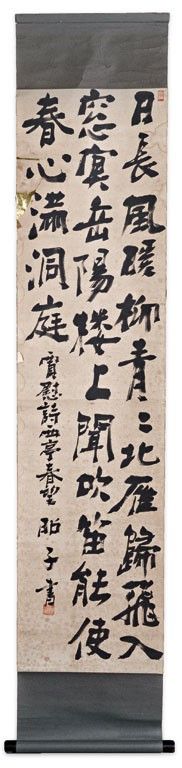 日長風暖柳青〻北雁歸飛入
窅冥岳陽楼上聞吹笛能使
春心滿洞庭
賈慰詩西亭春望 子書